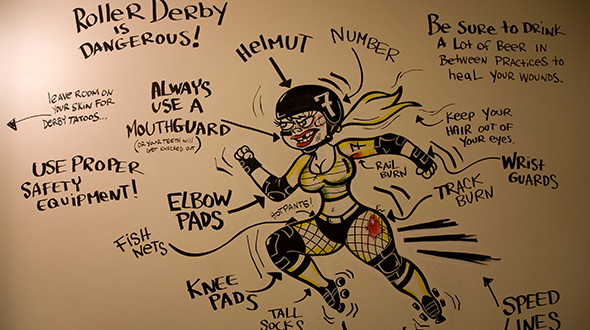 Roller Derby
is
Dangerous!
Helmut
Number
Be sure to drink
a lot of beer in
between practices to
heal your wounds.
leave room on
your skin for
derby tatoos...
Always
use a
mouthguard
(or your teeth will
get knocked out)
7
Keep your
hair out of
your eyes.
Use proper
safety
equipment!
7
Rail
burn
Wrist
guards
Elbow
pads
Hotpants!
Track
burn
Fish
nets
Knee
pads
Tall
socks
Speed
lines